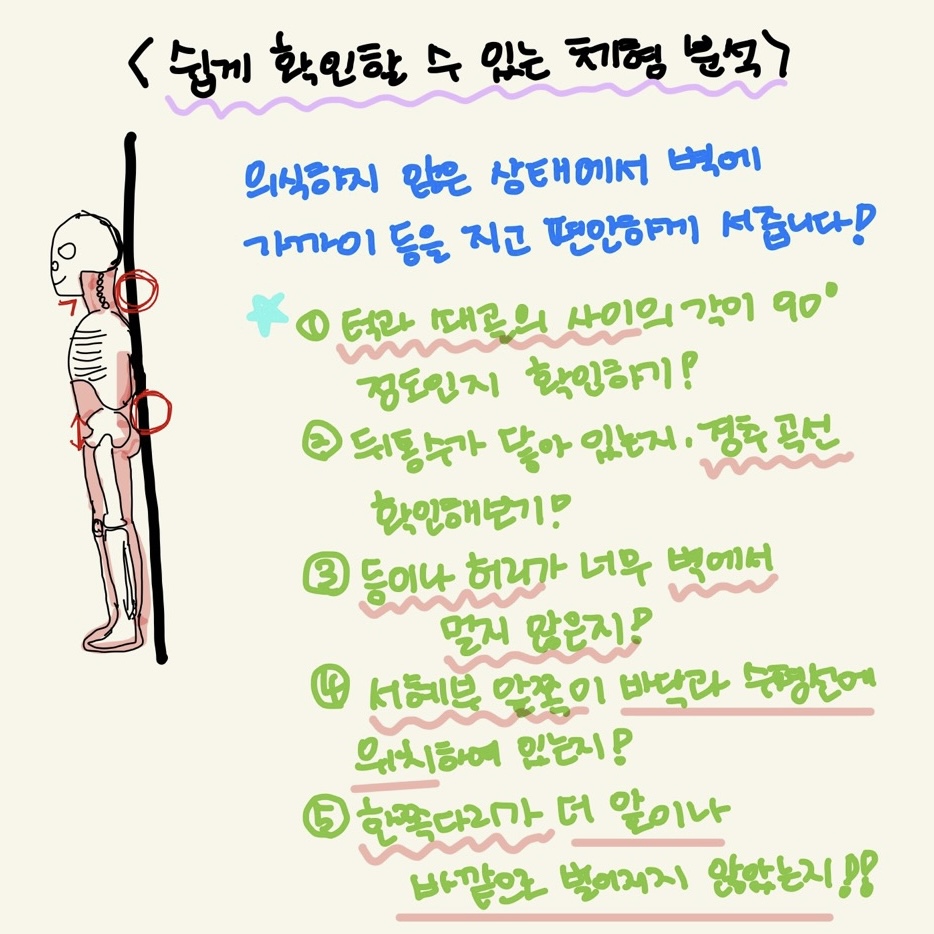 <쉽게 확인할 수 있는 체형 분석>
의식하지 않은 상태에서 벽에
가까이 등을 지고 편안하게 서줍니다!
① 턱과 때골의 사이의 각이 90°
정도인지 확인하기!
② 뒤통수가 닿아 있는지, 경추곡선
확인해보기!
③ 등이나 허리가 너무 벽에서
멀지 않은지!
④ 서혜부 앞쪽이 바닥과 수평선에
위치하여 있는지!
⑤ 한쪽다리가 더 앞이나
바깥으로 벌어지지 않았는지!!